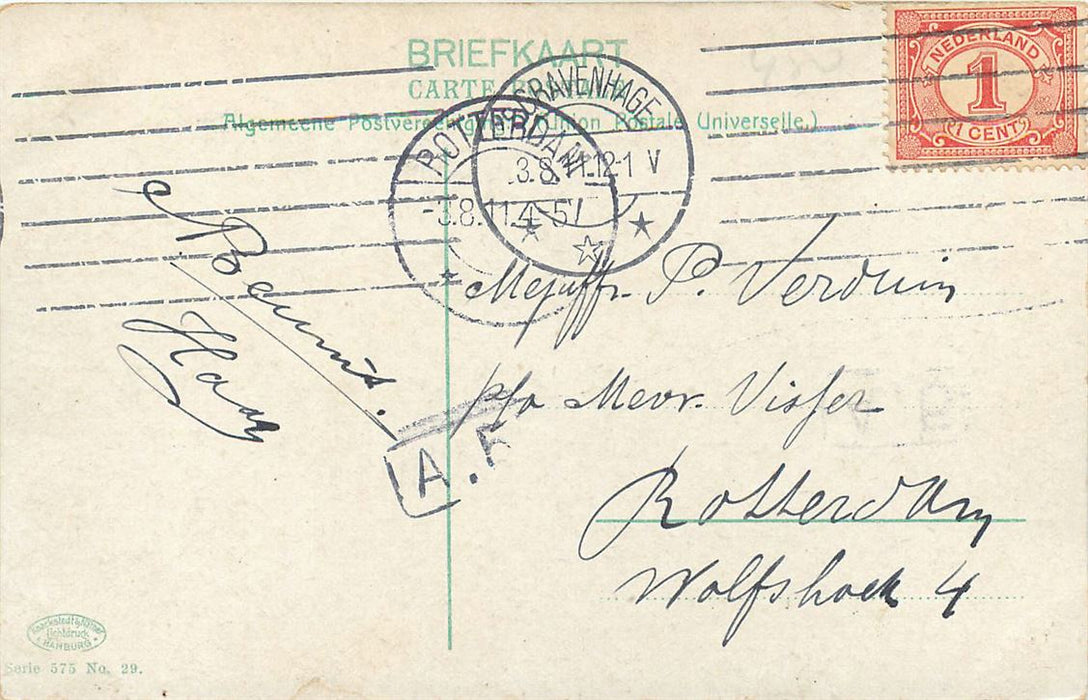 BRIEFKAART
CARTE
Algemeene Postvereeniging (Union Postale Universelle.)
NEDERLAND
1
1 CENT
'S GRAVENHAGE
3.8.11.12-1 V
ROTTERDAM
-3.8.11.4-5
Mejuffr. P. Verduin
p/a Mevr. Visser
Rotterdam
Wolfshoek 4
Haag
A.
Knackstedt & Näther
Lichtdruck
HAMBURG
Serie 575 No. 29.